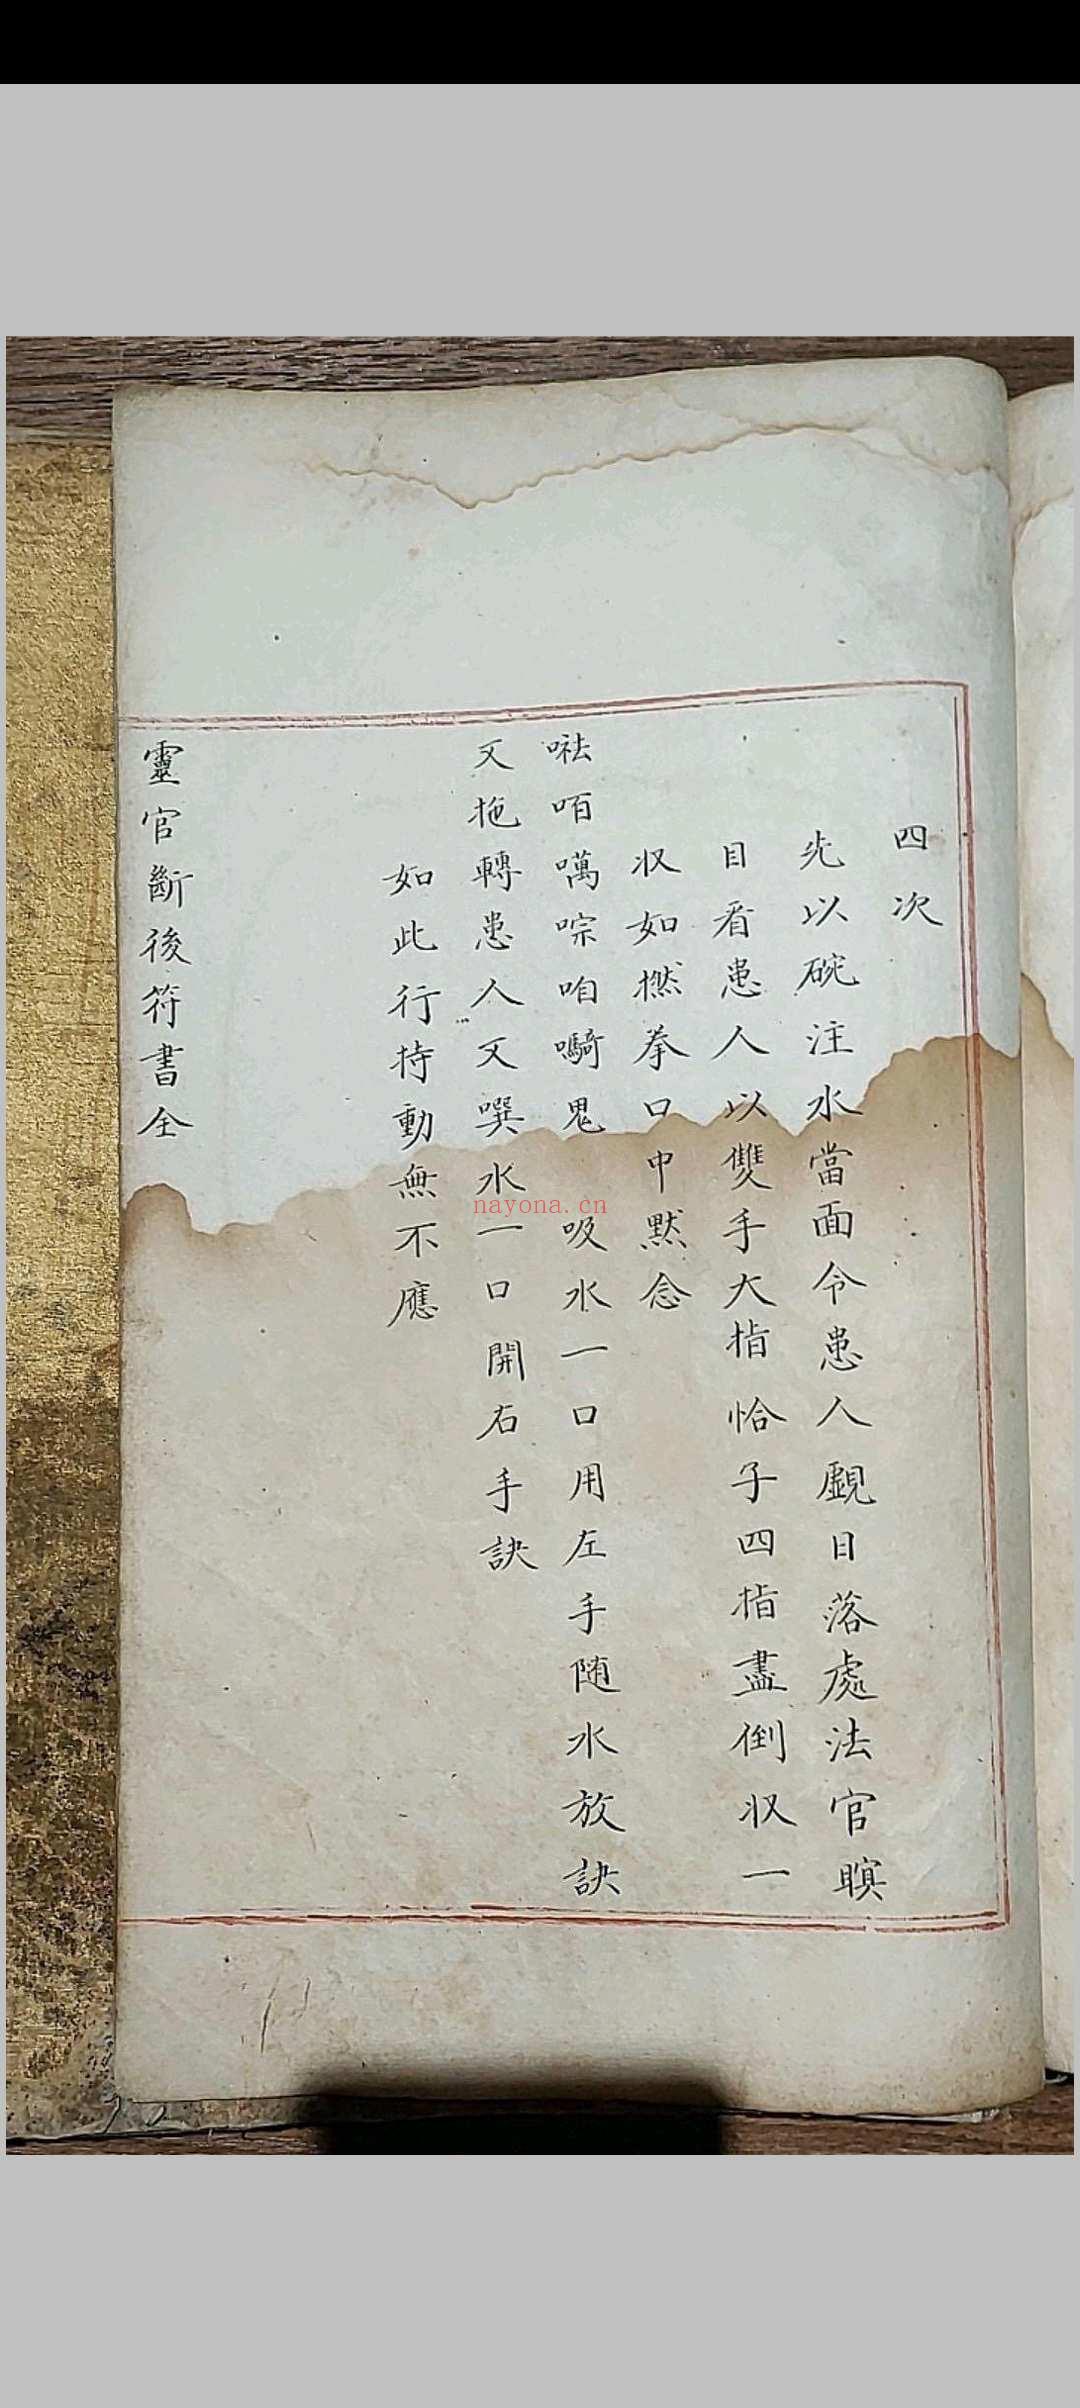 四次
先以碗注水當面令患人觑日落處法官瞑
目看患人以雙手大指恰子四指盡倒収一
収如撚拳口中默念
㘡咟囆㗰咱𡄴鬼 吸水一口用左手随水放訣
又拖轉患人又噀水一口開右手訣
如此行持動無不應
靈官斷後符書全
nayona.cn